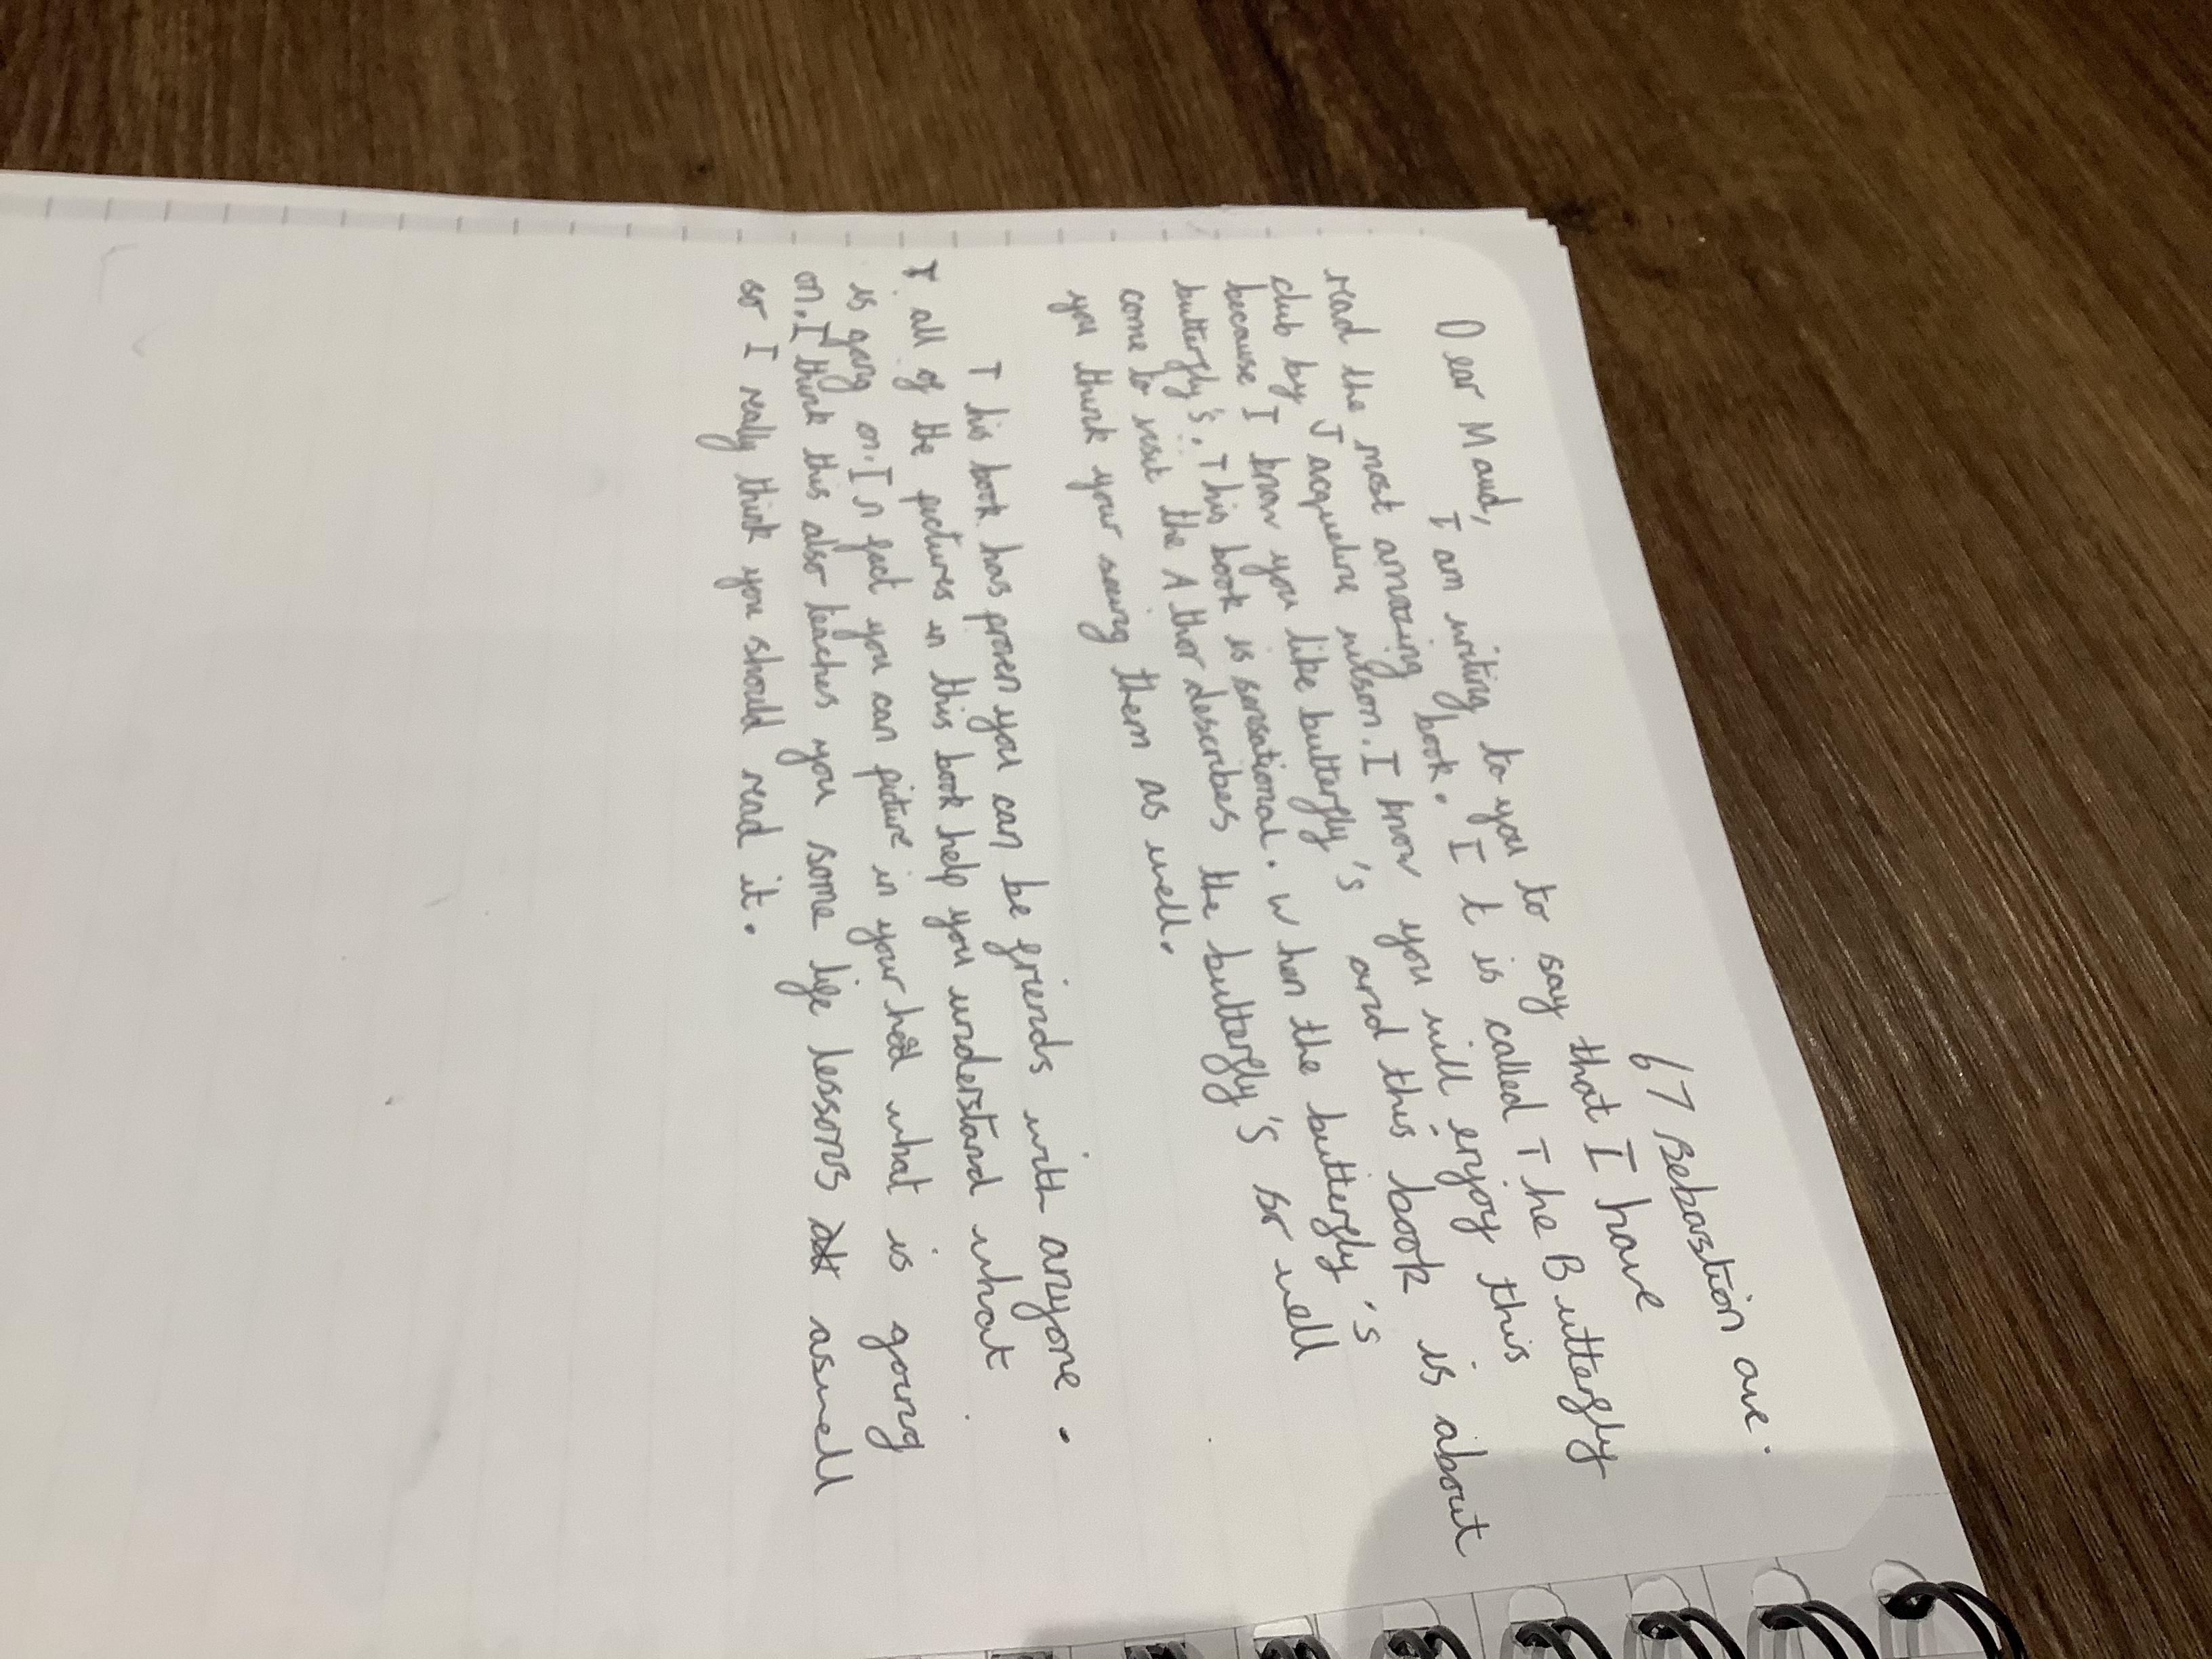 67 Sebastion ave.
Dear Maud,
I am writing to you to say that I have
read the most amazing book. It is called The Butterfly
club by Jacqueline wilson. I know you will enjoy this
because I know you like butterfly's and this book is about
butterfly's. This book is sensational. When the butterfly's
come to visit the Athor describes the butterfly's so well
you think your seeing them as well.
This book has proven you can be friends with anyone.
all of the pictures in this book help you understand what
is going on. In fact you can picture in your head what is going
on. I think this also teaches you some life lessons aswell
so I really think you should read it.